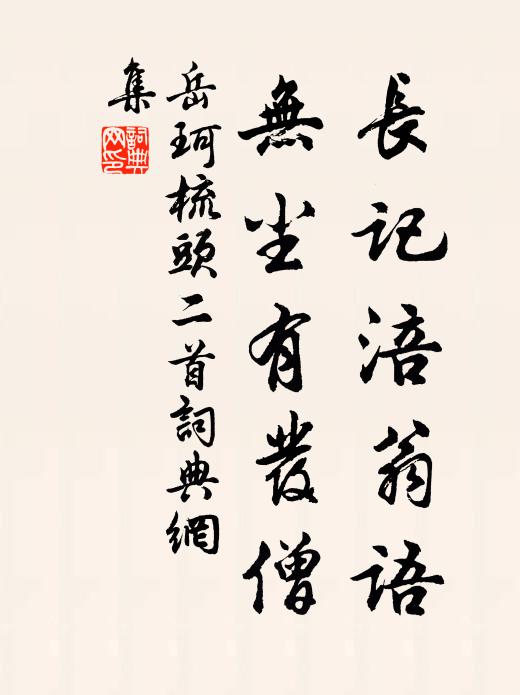 長記涪翁語
無尘有發僧
岳珂梳頭二首詞典網
集
詞典网印